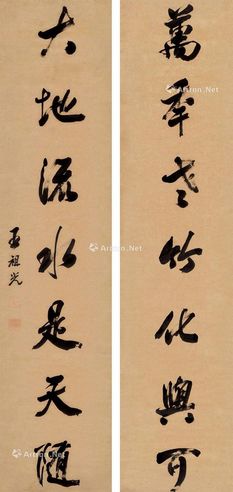 萬年老竹化與可
大地流水是天隨
祖光
Artron.Net
Artron.Net
Artron.Net
Artron.Net
Artron.Net